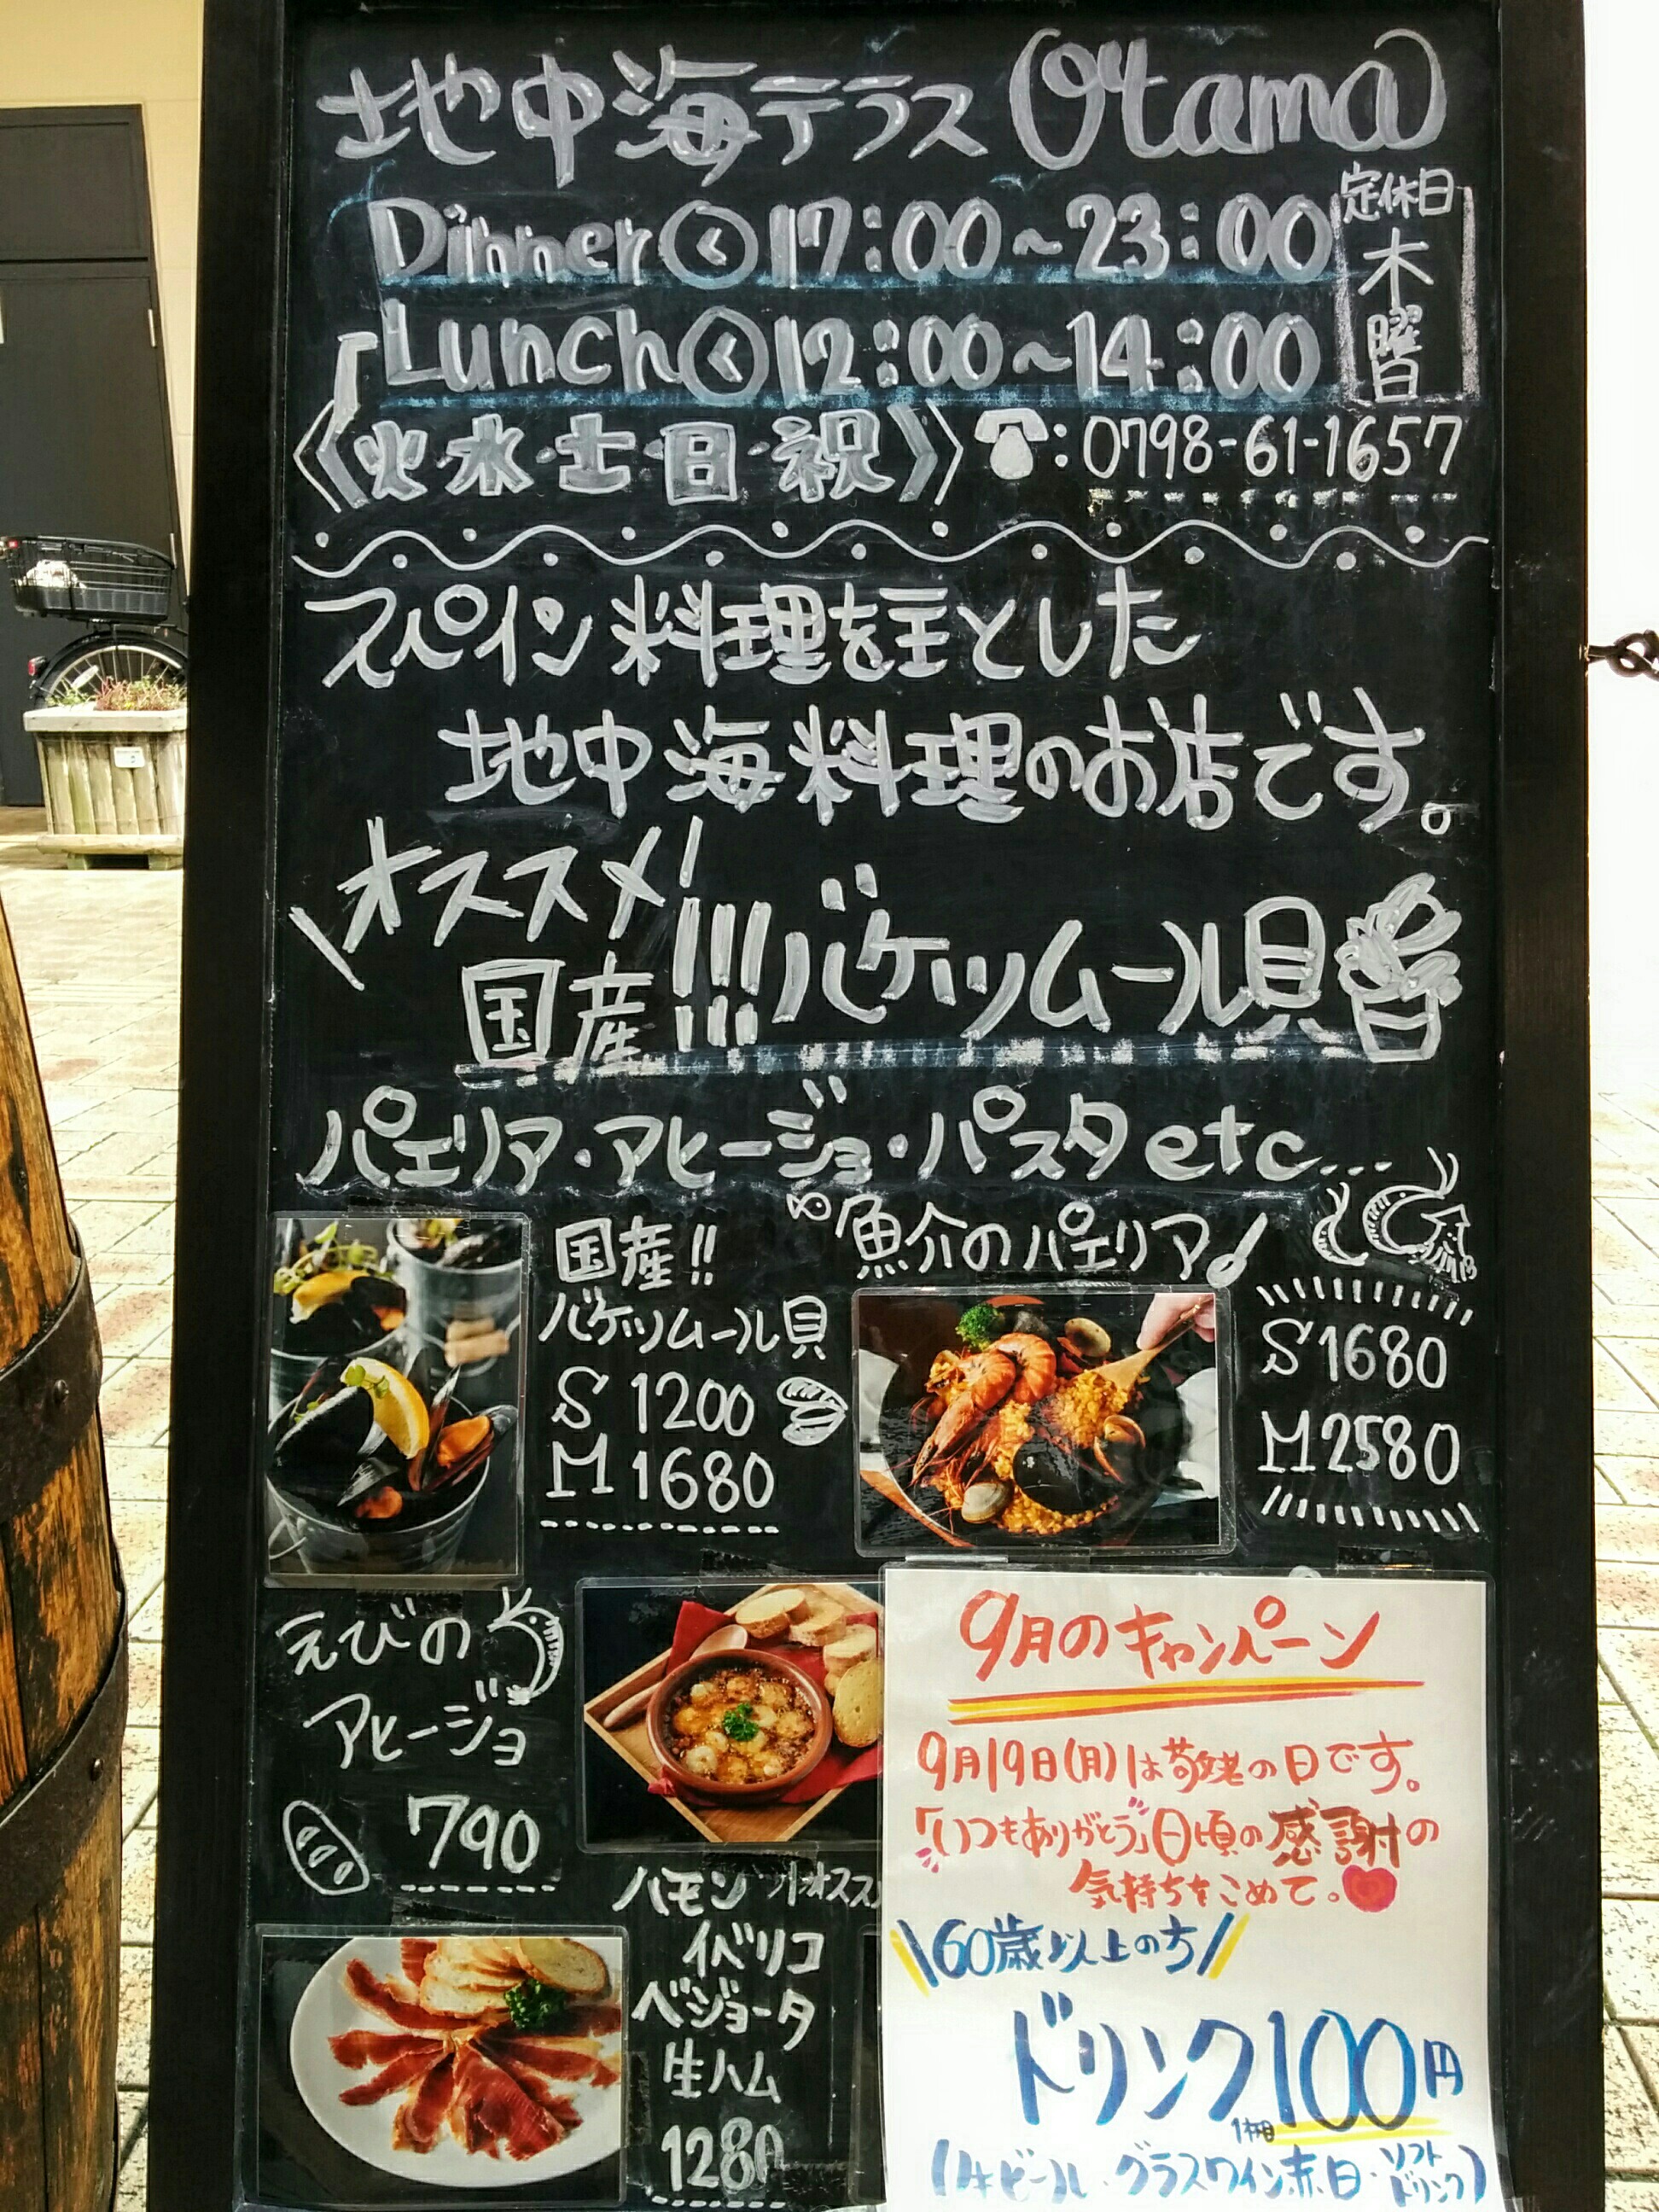 地中海テラス Otama
Dinner 17:00~23:00
定休日
木曜日
Lunch 12:00~14:00
《火・水・土・日・祝》 ☎:0798-61-1657
スペイン料理を主とした
地中海料理のお店です。
オススメ!
国産!!!バケツムール貝
パエリア・アヒージョ・パスタetc...
国産!!
バケツムール貝
S 1200
M 1680
魚介のパエリア♪
S1680
M2580
えびの
アヒージョ
790
ハモン
イベリコ
ベジョータ
生ハム
1280
オスス
9月のキャンペーン
9月19日(月)は敬老の日です。
「いつもありがとう」日頃の感謝の
気持ちをこめて。
\60歳以上の方/
ドリンク1杯目100円
(生ビール・グラスワイン赤白・ソフトドリンク)